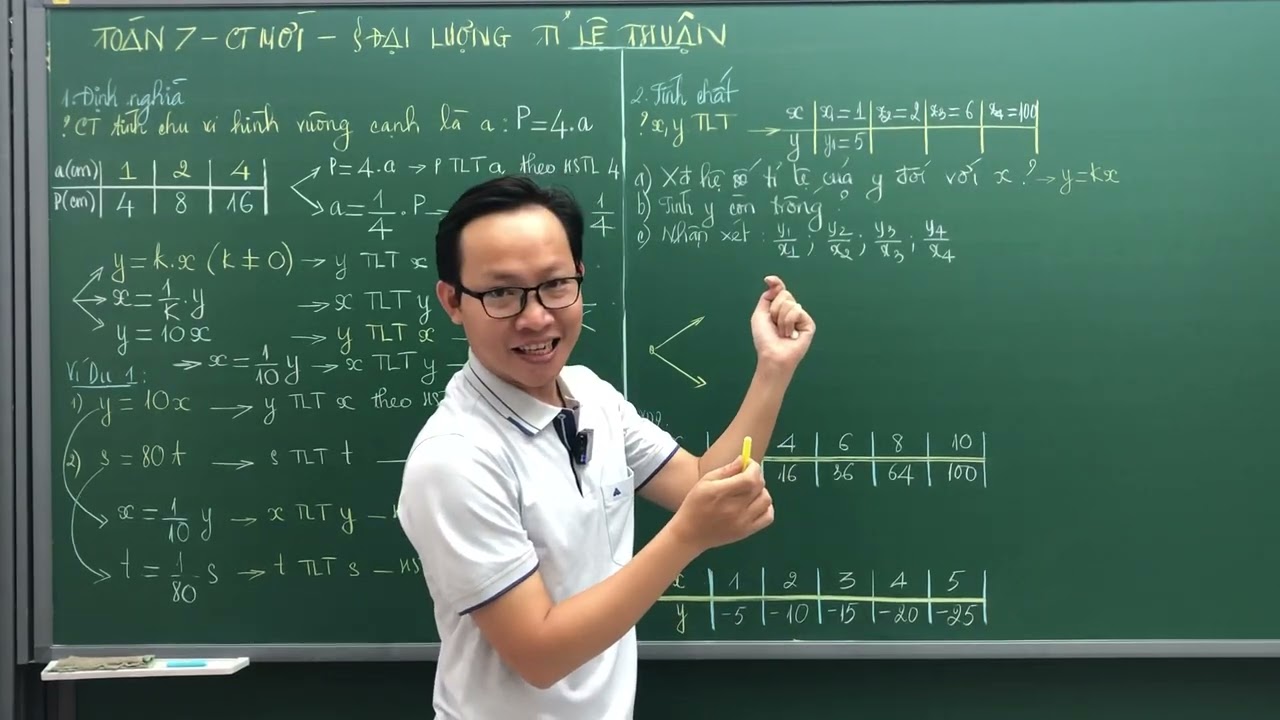 TOÁN 7 – CT MỚI – § ĐẠI LƯỢNG TỈ LỆ THUẬN
1. Định nghĩa
? CT tính chu vi hình vuông cạnh là a : P = 4.a
a(cm) | 1 | 2 | 4
P(cm) | 4 | 8 | 16
P = 4.a → P TLT a theo HSTL 4
a = 1/4 . P → 1/4
y = k.x (k ≠ 0) → y TLT x
x = 1/k . y → x TLT y
y = 10x → y TLT x
→ x = 1/10 y → x TLT y
Ví Dụ 1 :
1) y = 10x → y TLT x theo HS
2) s = 80t → s TLT t
x = 1/10 y → x TLT y
t = 1/80 . s → t TLT s – HS
2. Tính chất
? x, y TLT → x | x1 = 1 | x2 = 2 | x3 = 6 | x4 = 100
y | y1 = 5
a) Xđ hệ số tỉ lệ của y đối với x ? → y = kx
b) Tính y còn trống ?
c) Nhận xét : y1/x1 ; y2/x2 ; y3/x3 ; y4/x4
4 | 6 | 8 | 10
16 | 36 | 64 | 100
x | 1 | 2 | 3 | 4 | 5
y | -5 | -10 | -15 | -20 | -25